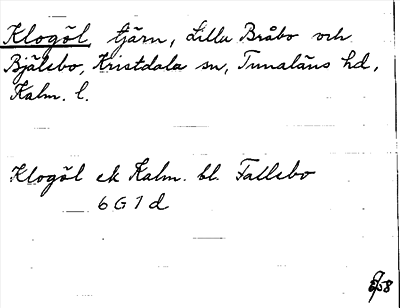 Klogöl, tjärn, Lilla Bråbo och
Bjälebo, Kristdala sn, Tunaläns hd,
Kalm. l.
Klogöl ek Kalm. bl. Fallebo
6 G 1 d